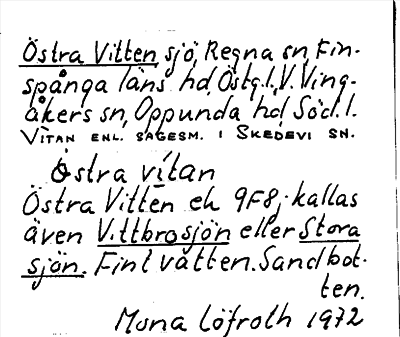 Östra Vitten sjö, Regna sn, Fin-
spånga läns hd, Östg.l., V. Ving-
åkers sn, Oppunda hd, Söd.l.
VITAN ENL. SAGESM. I SKEDEVI SN.
östra vítan
Östra Vitten ek 9F8j kallas
även Vittbrosjön eller Stora
sjön. Fint vatten. Sandbot-
ten.
Mona Löfroth 1972